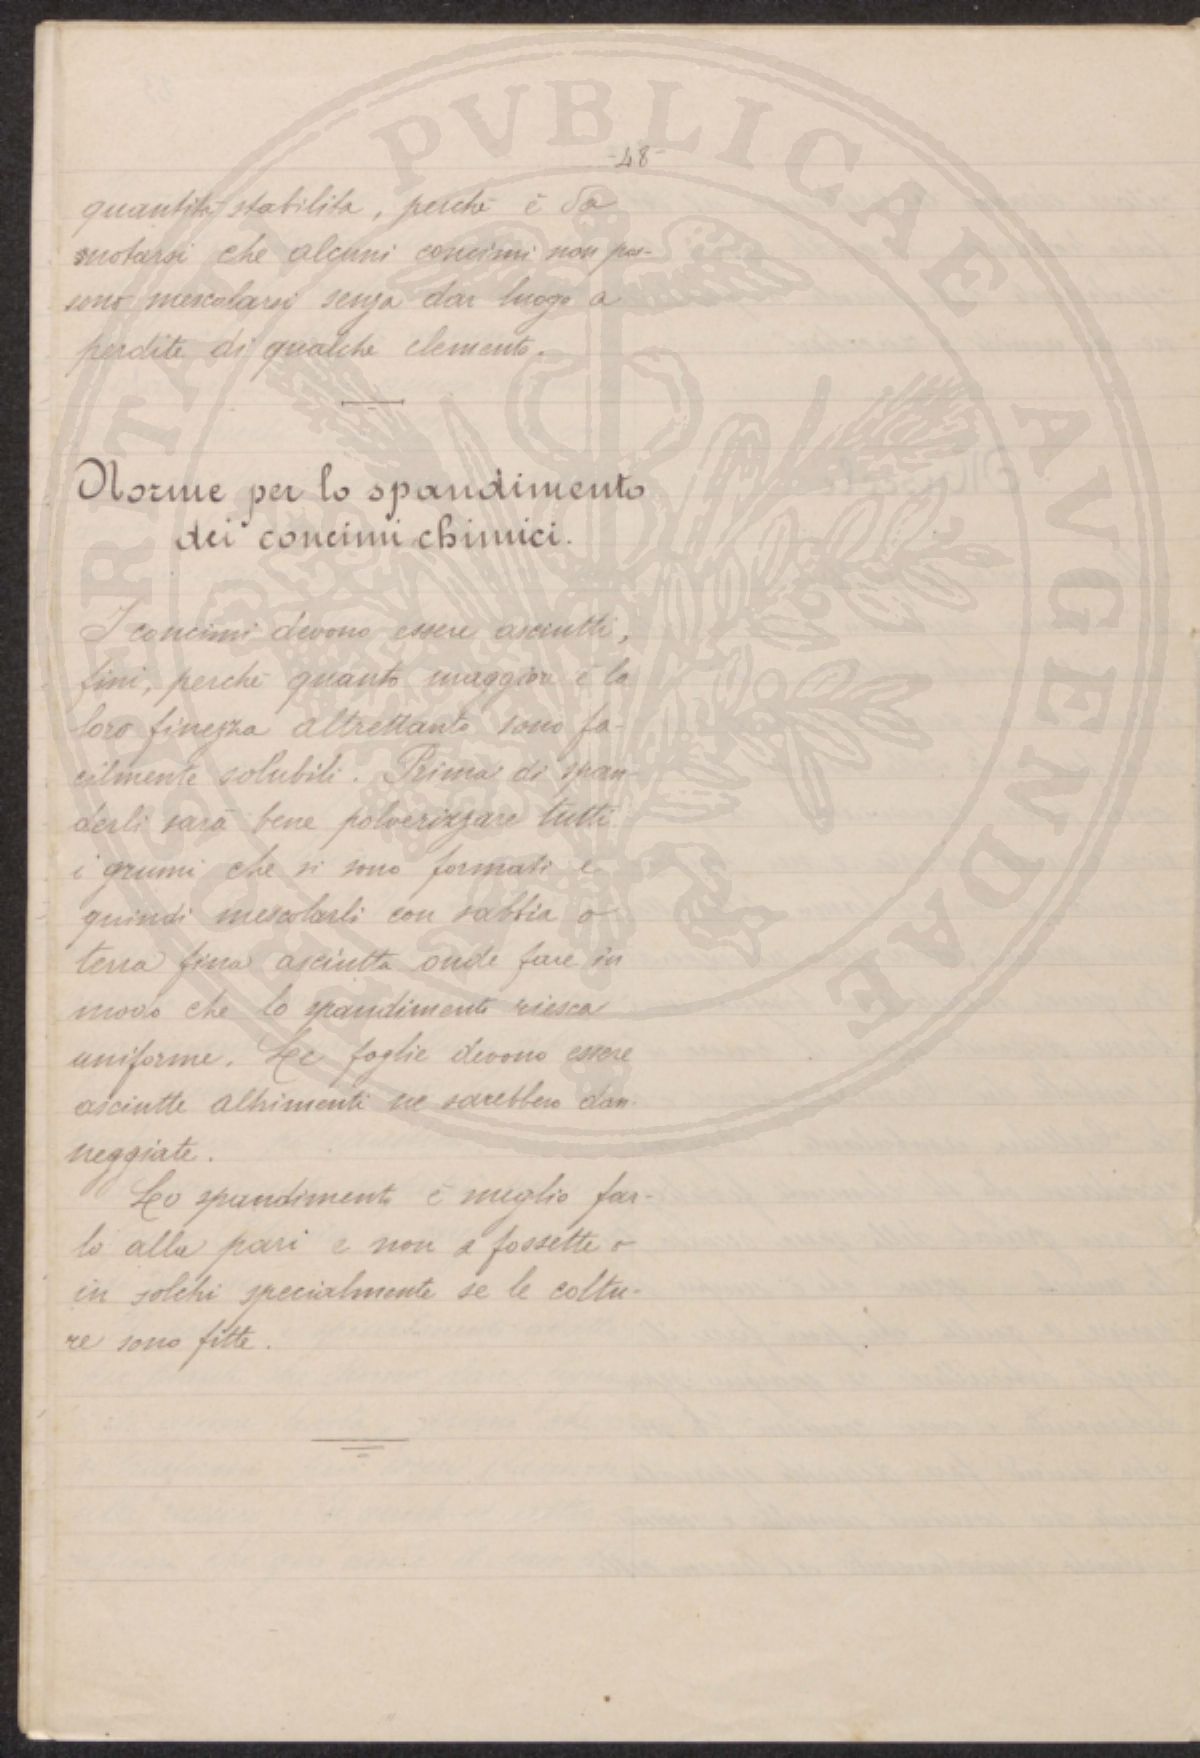 -48-
quantità stabilita, perchè è da
notarsi che alcuni concimi non pos-
sono mescolarsi senza dar luogo a
perdite di qualche elemento.
Norme per lo spandimento
dei concimi chimici.
I concimi devono essere asciutti,
fini, perchè quanto maggiore è la
loro finezza altrettanto sono fa-
cilmente solubili. Prima di span-
derli sarà bene polverizzare tutti
i grumi che si sono formati e
quindi mescolarli con sabbia o
terra fina asciutta onde fare in
modo che lo spandimento riesca
uniforme. Le foglie devono essere
asciutte altrimenti ne sarebbero dan-
neggiate.
Lo spandimento è meglio far-
lo alla pari e non a fossette o
in solchi specialmente se le coltu-
re sono fitte.
PVBLICAE AVGENDAE